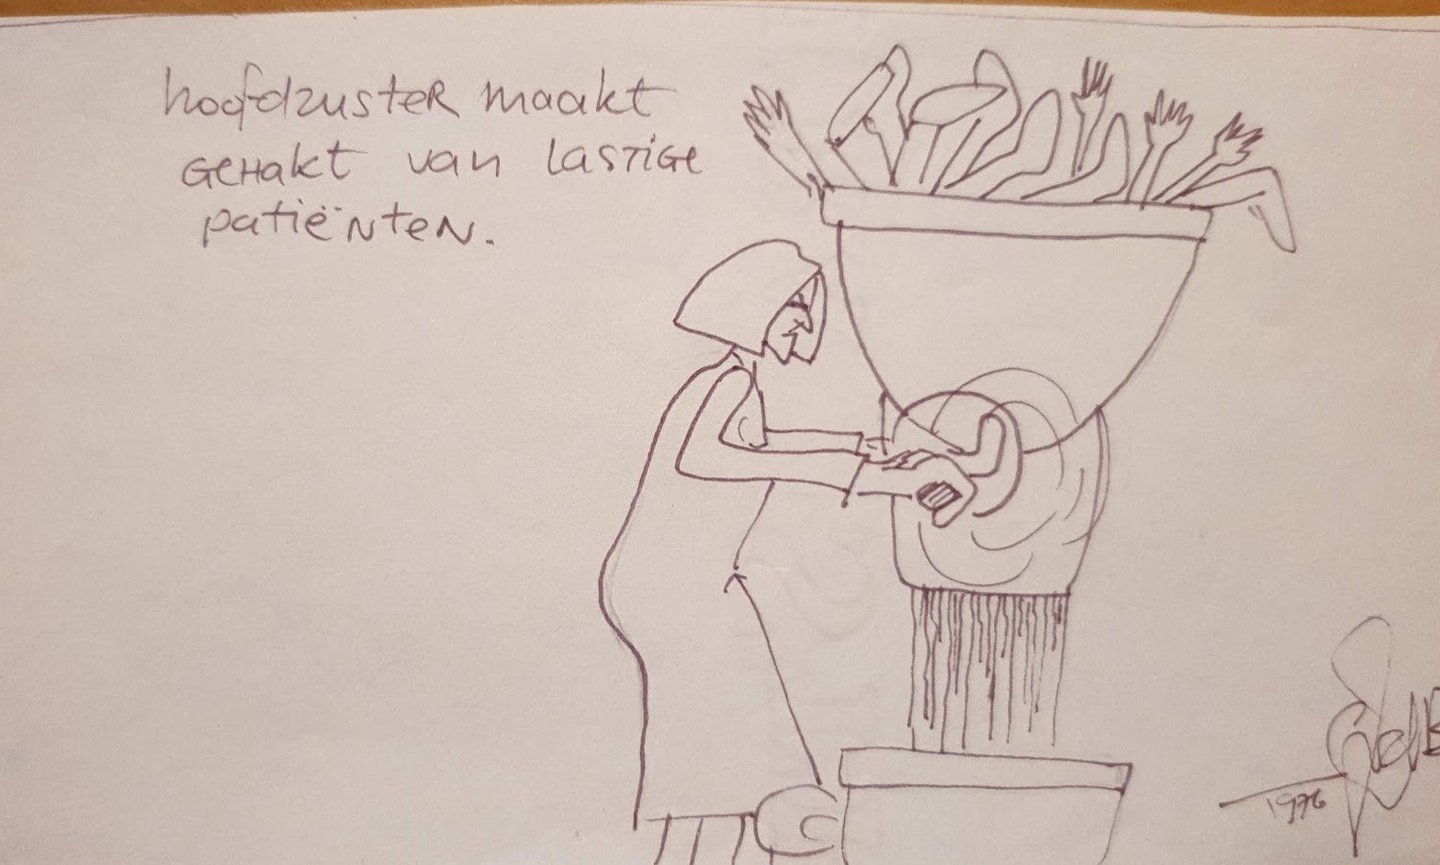 hoofdzuster maakt
gehakt van lastige
patiënten.
1976